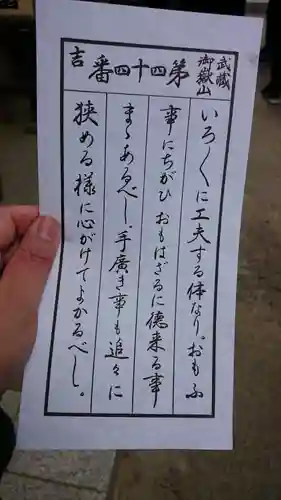 武蔵御嶽山
第四十四番
吉
いろ〳〵に工夫する体なり。おもふ
事にちがひおもはざるに徳来る事
まゝあるべし。手廣き事も追々に
狭める様に心がけてよかるべし。